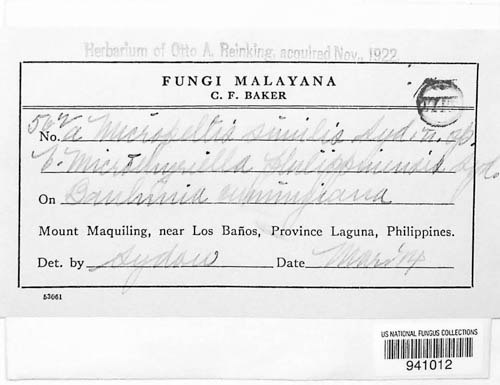 Herbarium of Otto A. Reinking, acquired Nov., 1922
FUNGI MALAYANA
C. F. BAKER
No. a Micropeltis similis Syd. n. sp.
b. Microthyriella Philippinensis Sydow
On Bauhinia cumingiana
Mount Maquiling, near Los Baños, Province Laguna, Philippines.
Det. by Sydow Date
53661
US NATIONAL FUNGUS COLLECTIONS
941012